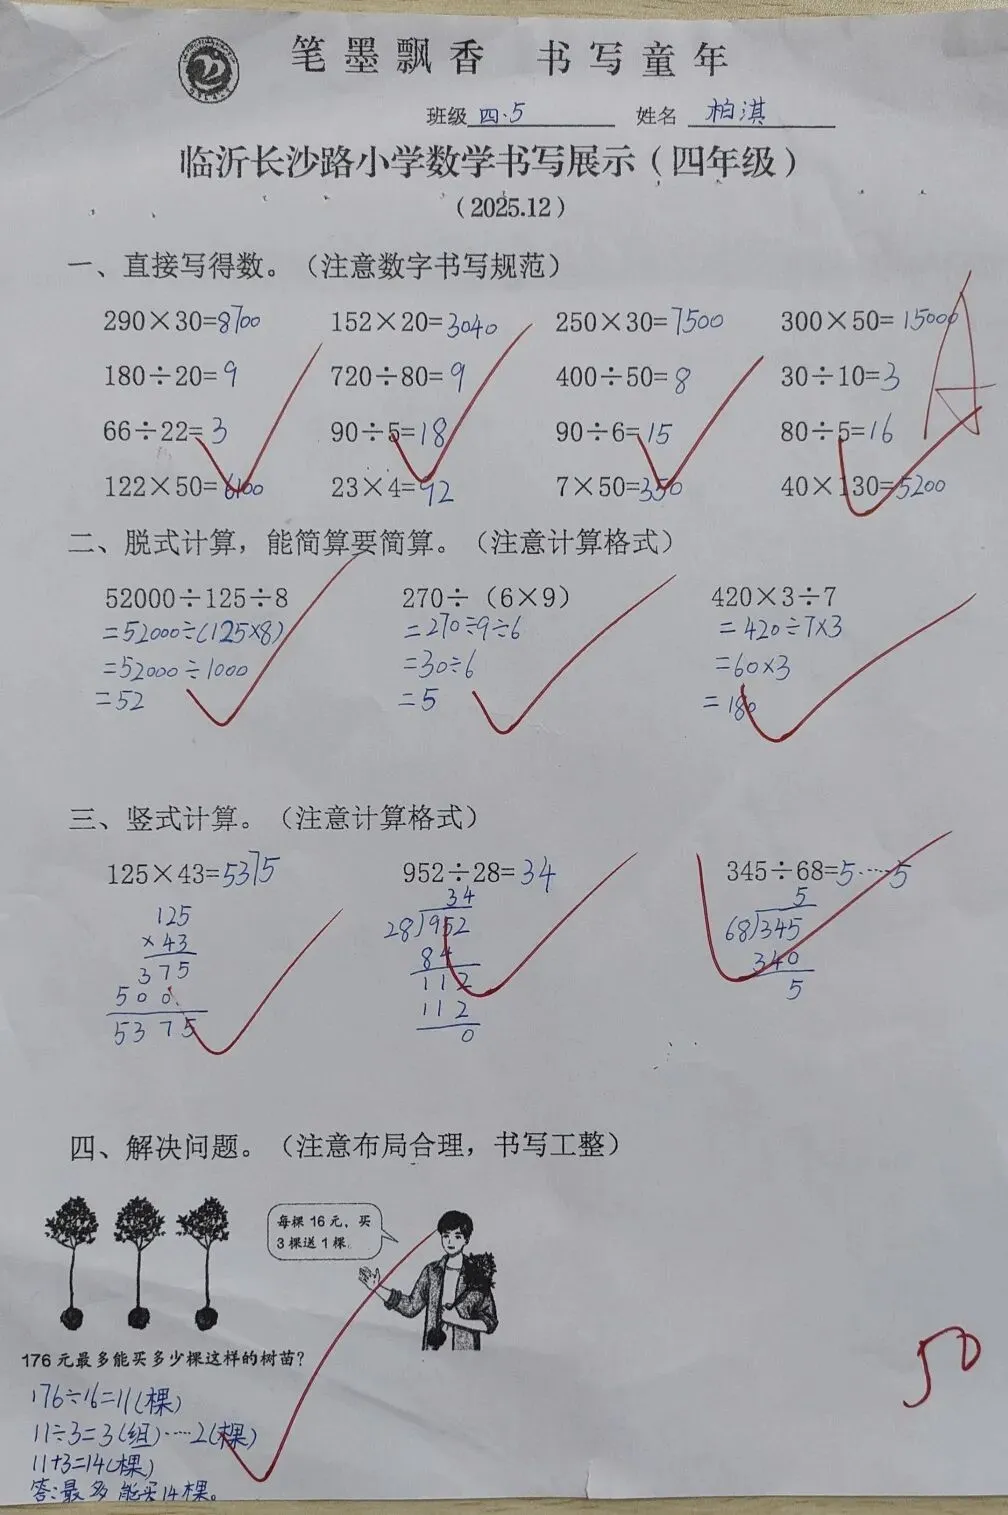 笔墨飘香 书写童年
班级 四.5 姓名 柏淇
临沂长沙路小学数学书写展示（四年级）
（2025.12）
一、直接写得数。（注意数字书写规范）
290×30=8700 152×20=3040 250×30=7500 300×50=15000
180÷20=9 720÷80=9 400÷50=8 30÷10=3
66÷22=3 90÷5=18 90÷6=15 80÷5=16
122×50=6100 23×4=92 7×50=350 40×130=5200
A
二、脱式计算，能简算要简算。（注意计算格式）
52000÷125÷8 270÷（6×9） 420×3÷7
=52000÷(125×8) =270÷9÷6 =420÷7×3
=52000÷1000 =30÷6 =60×3
=52 =5 =180
三、竖式计算。（注意计算格式）
125×43=5375 952÷28=34 345÷68=5……5
125 34 5
×43 28)952 68)345
375 84 340
500 112 5
5375 112
0
四、解决问题。（注意布局合理，书写工整）
每棵 16 元，买
3 棵送 1 棵。
176 元最多能买多少棵这样的树苗？
176÷16=11(棵)
11÷3=3(组)……2(棵)
11+3=14(棵)
答:最多能买14棵。
50